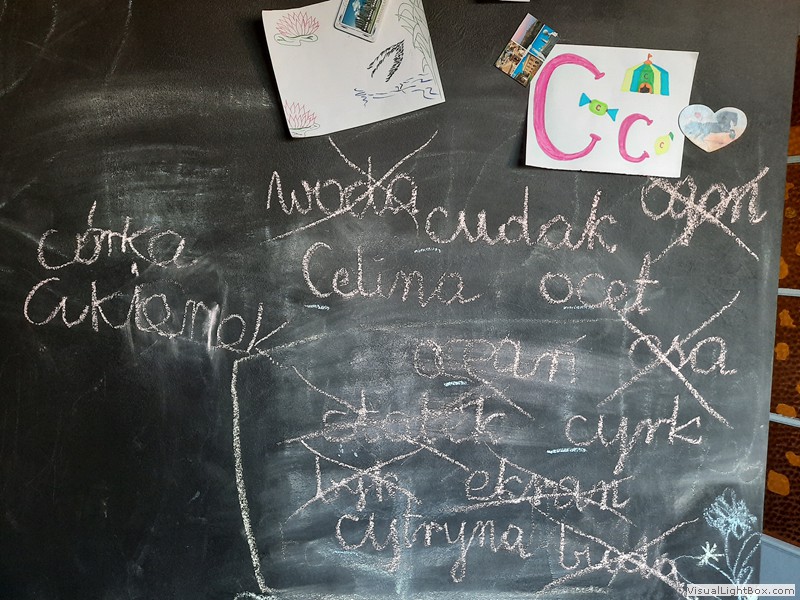 C c
woda cudak ogon
córka
Celina ocet
cukierek
ocean osa
cyrk
ekran
cytryna
VisualLightBox.com